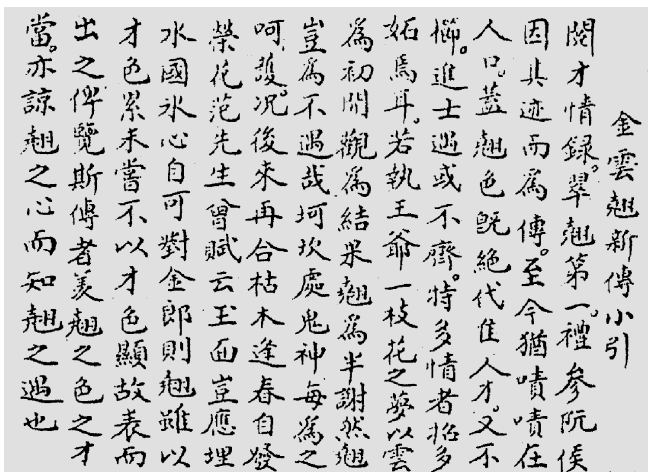 金雲翹新傳小引
閱才情録。翠翹第一。禮參阮侯
因其迹而爲傳。至今猶嘖嘖在
人口。蓋翹色既絶代佳人才。又不
櫛。進士遇或不齊。特多情者招多
妬焉耳。若執王爺一枝花之夢以雲
爲初開觀爲結果翹爲半謝然翹
豈爲不遇哉坷坎處鬼神每爲之
呵護。况後來再合枯木逢春自發
榮花范先生曾賦云玉面豈應埋
水國氷心自可對金郎則翹雖以
才色累未嘗不以才色顯故表而
出之俾覽斯傳者羡翹之色之才
當。亦諒翹之心而知翹之遇也